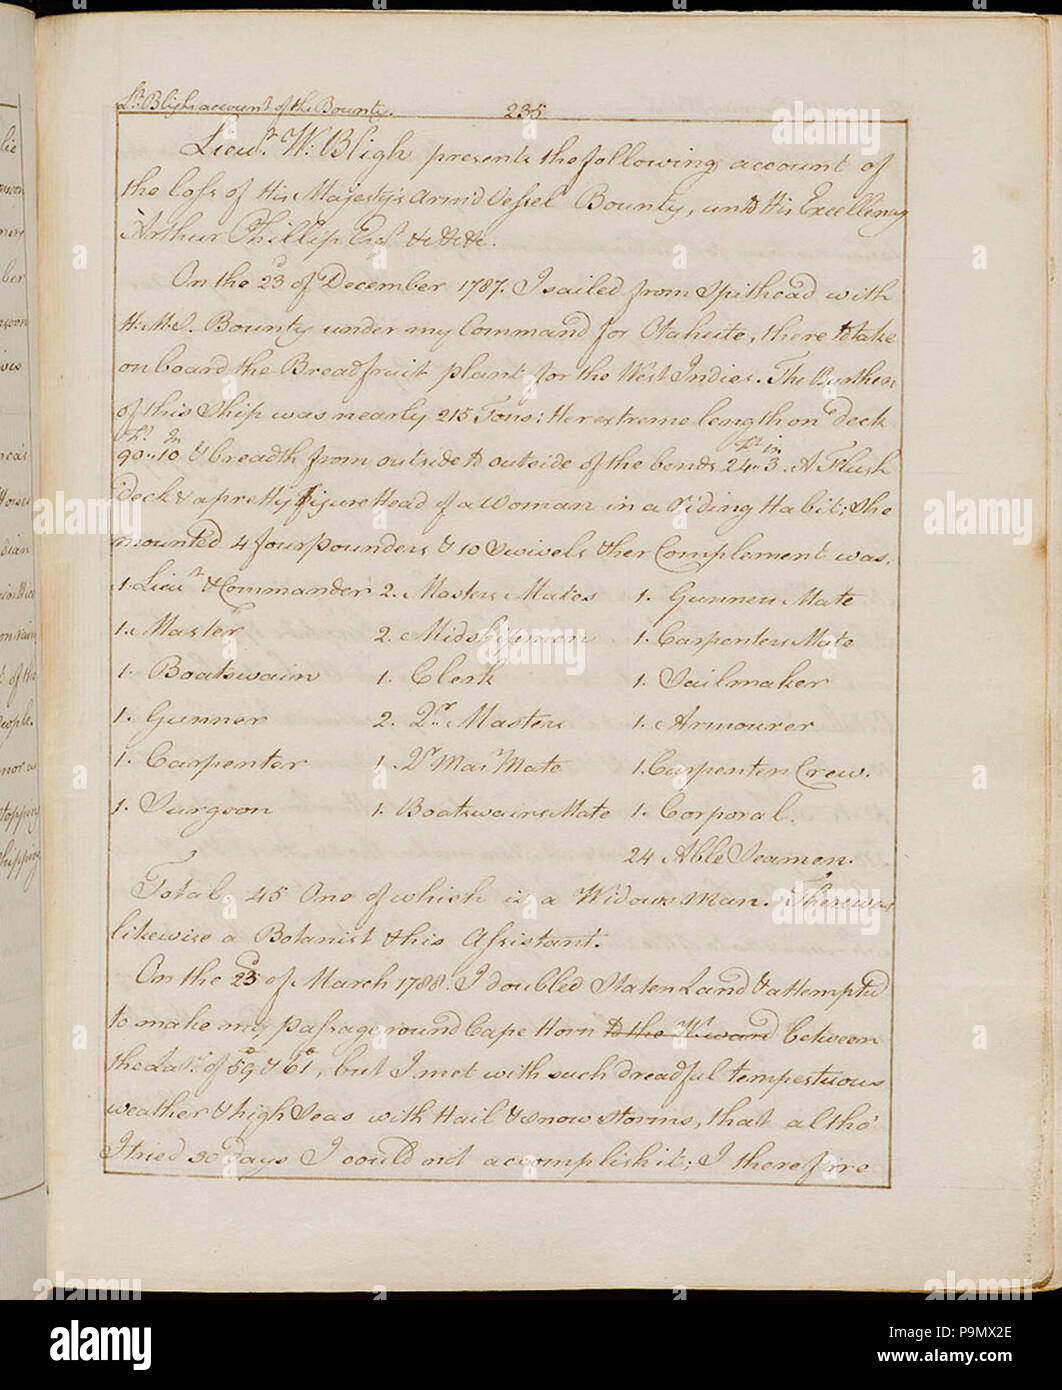 Lt. Bligh account of the Bounty. 235
Lieut. W: Bligh presents the following account of
the loss of His Majesty's Armd Vessel Bounty, unto His Excellency
Arthur Phillip Esqr. &c &c &c.
On the 23d of December 1787. I sailed from Spithead with
H.M.S. Bounty under my Command for Otaheite, there to take
on board the Breadfruit plant for the West Indies. The Burthen
of this Ship was nearly 215 Tons; Her extreme length on deck
90Ft..10In & breadth from outside to outside of the bends 24Ft..3in. A Flush
deck & a pretty figure Head of a Woman in a riding Habit; She
mounted 4 four pounders & 10 Swivels & her Complement was,
1. Lieut. & Commander 2. Masters Mates 1. Gunners Mate
1. Master 2. Midshipmen 1. Carpenters Mate
1. Boatswain 1. Clerk 1. Sailmaker
1. Gunner 2. Qr. Masters 1. Armourer
1. Carpenter 1. Qr Mars Mate 1. Carpenters Crew.
1. Surgeon 1. Boatswains Mate 1. Corporal.
24 Able Seamen.
Total, 45 One of which is a Widows Man. There was
likewise a Botanist & his Assistant.
On the 23d of March 1788. I doubled Staten Land & attempted
to make my passage round Cape Horn to the Wtward between
the Latr. of 59° & 61°, but I met with such dreadful tempestuous
weather & high Seas with Hail & snow storms, that altho'
I tried 30 days I could not accomplish it; I therefore
lie
ber
People.
stopping
shipping
alamy
alamy
Image ID: P9MX2E
www.alamy.com